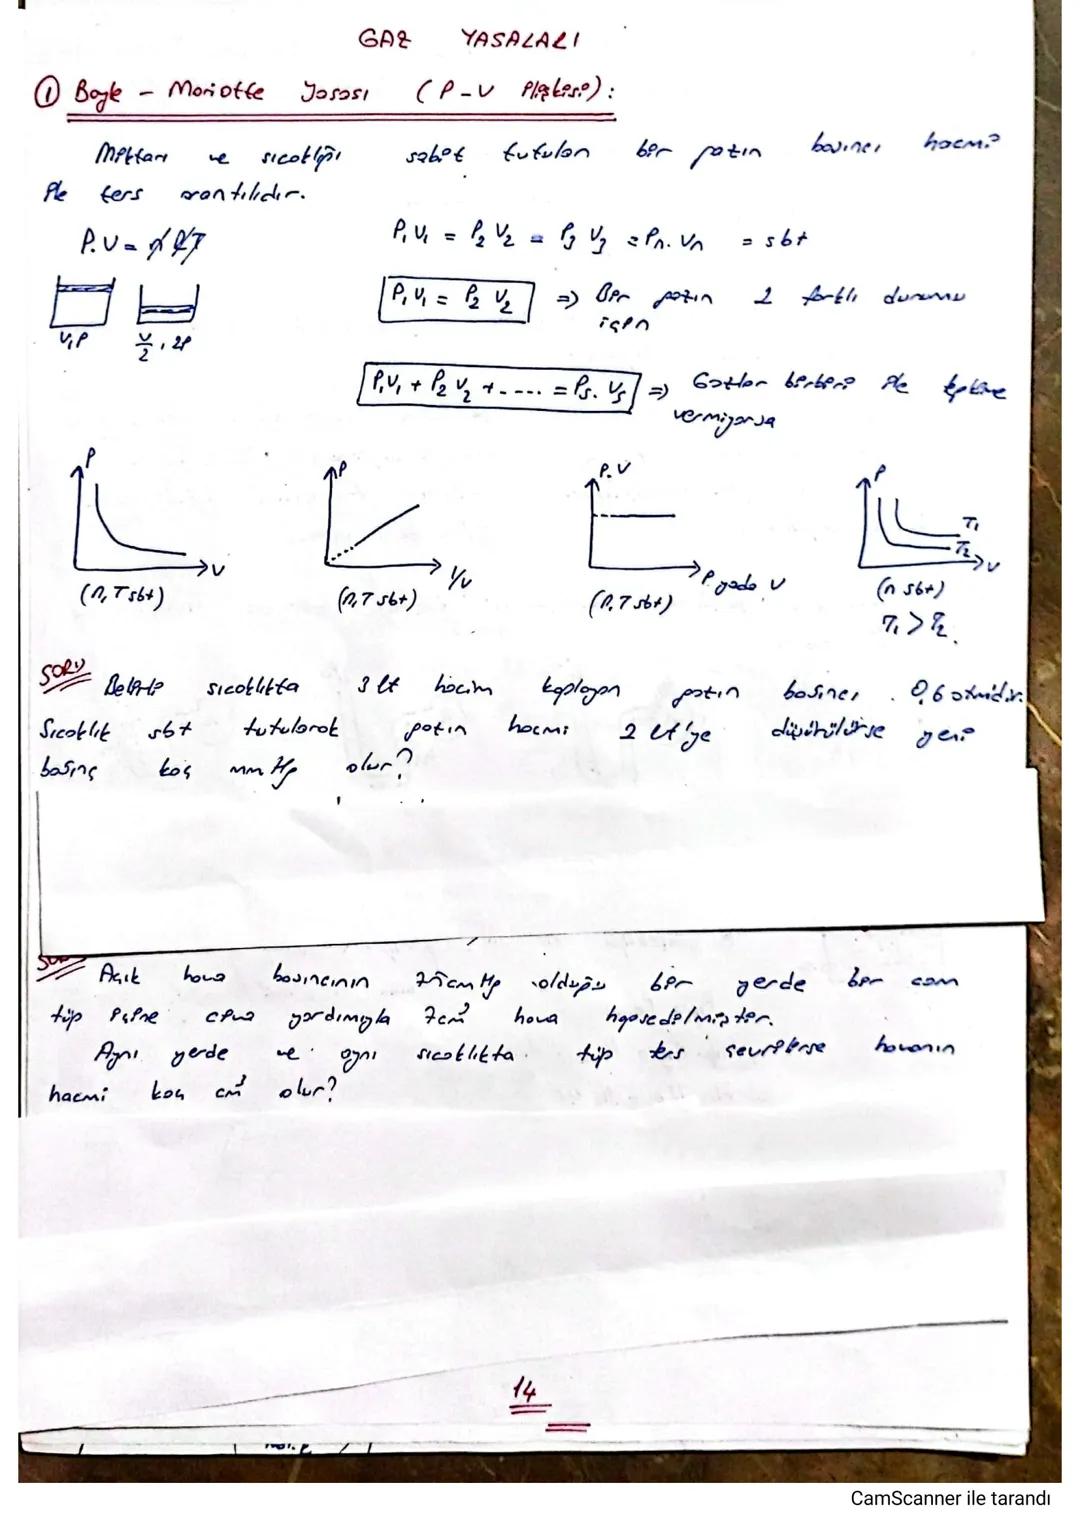 GAZ YASALARI
① Boyle - Mariotte Yasası (P-V İlişkisi):
Miktarı ve sıcaklığı sabit tutulan bir gazın basıncı hacmi
ile ters orantılıdır.
P.V = nRT
P₁V₁ = P₂V₂ = P₃V₃ = Pn.Vn = sbt
V,P
V/2, 2P
P₁V₁ = P₂V₂ => Bir gazın 2 farklı durumu
için
P₁V₁ + P₂V₂ + ..... = Ps.Vs => Gazlar birbiri ile tepkime
vermiyorsa
P V (n,T sbt)
P 1/V (n,T sbt)
P.V P yada V (n,T sbt)
P T₁ T₂ V (n sbt)
T₁ > T₂
SORU Belirli sıcaklıkta 3 lt hacim kaplayan gazın basıncı 0,6 atmdir.
Sıcaklık sbt tutularak gazın hacmi 2 lt'ye düşürülürse yeni
basınç kaç mm Hg olur?
Açık hava basıncının 75 cm Hg olduğu bir yerde bir cam
tüp içine civa yardımıyla 7cm³ hava hapsedilmiştir.
Aynı yerde ve aynı sıcaklıkta tüp ters çevrilirse havanın
hacmi kaç cm³ olur?
14
CamScanner ile tarandı